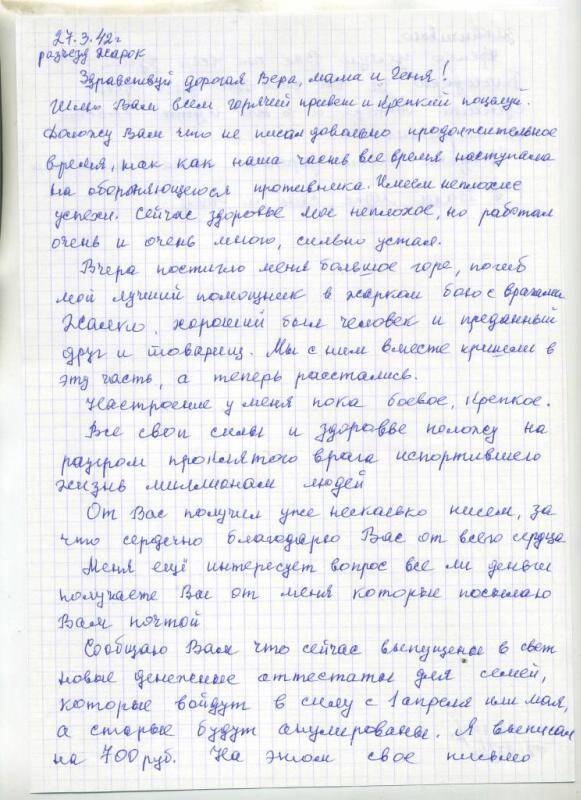 27.3.42г
разъезд Жарок
Здравствуй дорогая Вера, мама и Геня!
Шлю Вам всем горячий привет и крепкий поцелуй.
Доложу Вам что не писал довольно продолжительное
время, так как наша часть все время наступала
на обороняющегося противника. Имеем неплохие
успехи. Сейчас здоровье мое неплохое, но работал
очень и очень много, сильно устал.
Вчера постигло меня большое горе, погиб
мой лучший помощник в жарком бою с врагами
Жалко, хороший был человек и преданный
друг и товарищ. Мы с ним вместе пришли в
эту часть, а теперь расстались.
Настроение у меня пока боевое, крепкое.
Все свои силы и здоровье положу на
разгром проклятого врага испортившего
жизнь миллионам людей
От Вас получил уже несколько писем, за
что сердечно благодарю Вас от всего сердца
Меня ещё интересует вопрос все ли деньги
получаете Вы от меня которые посылаю
Вам почтой
Сообщаю Вам что сейчас выпущены в свет
новые денежные аттестаты для семей,
которые войдут в силу с 1 апреля или мая,
а старые будут анулированы. Я выписал
на 700 руб. На этом свое письмо